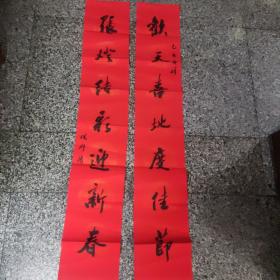 歡天喜地度佳節
張燈結彩迎新春